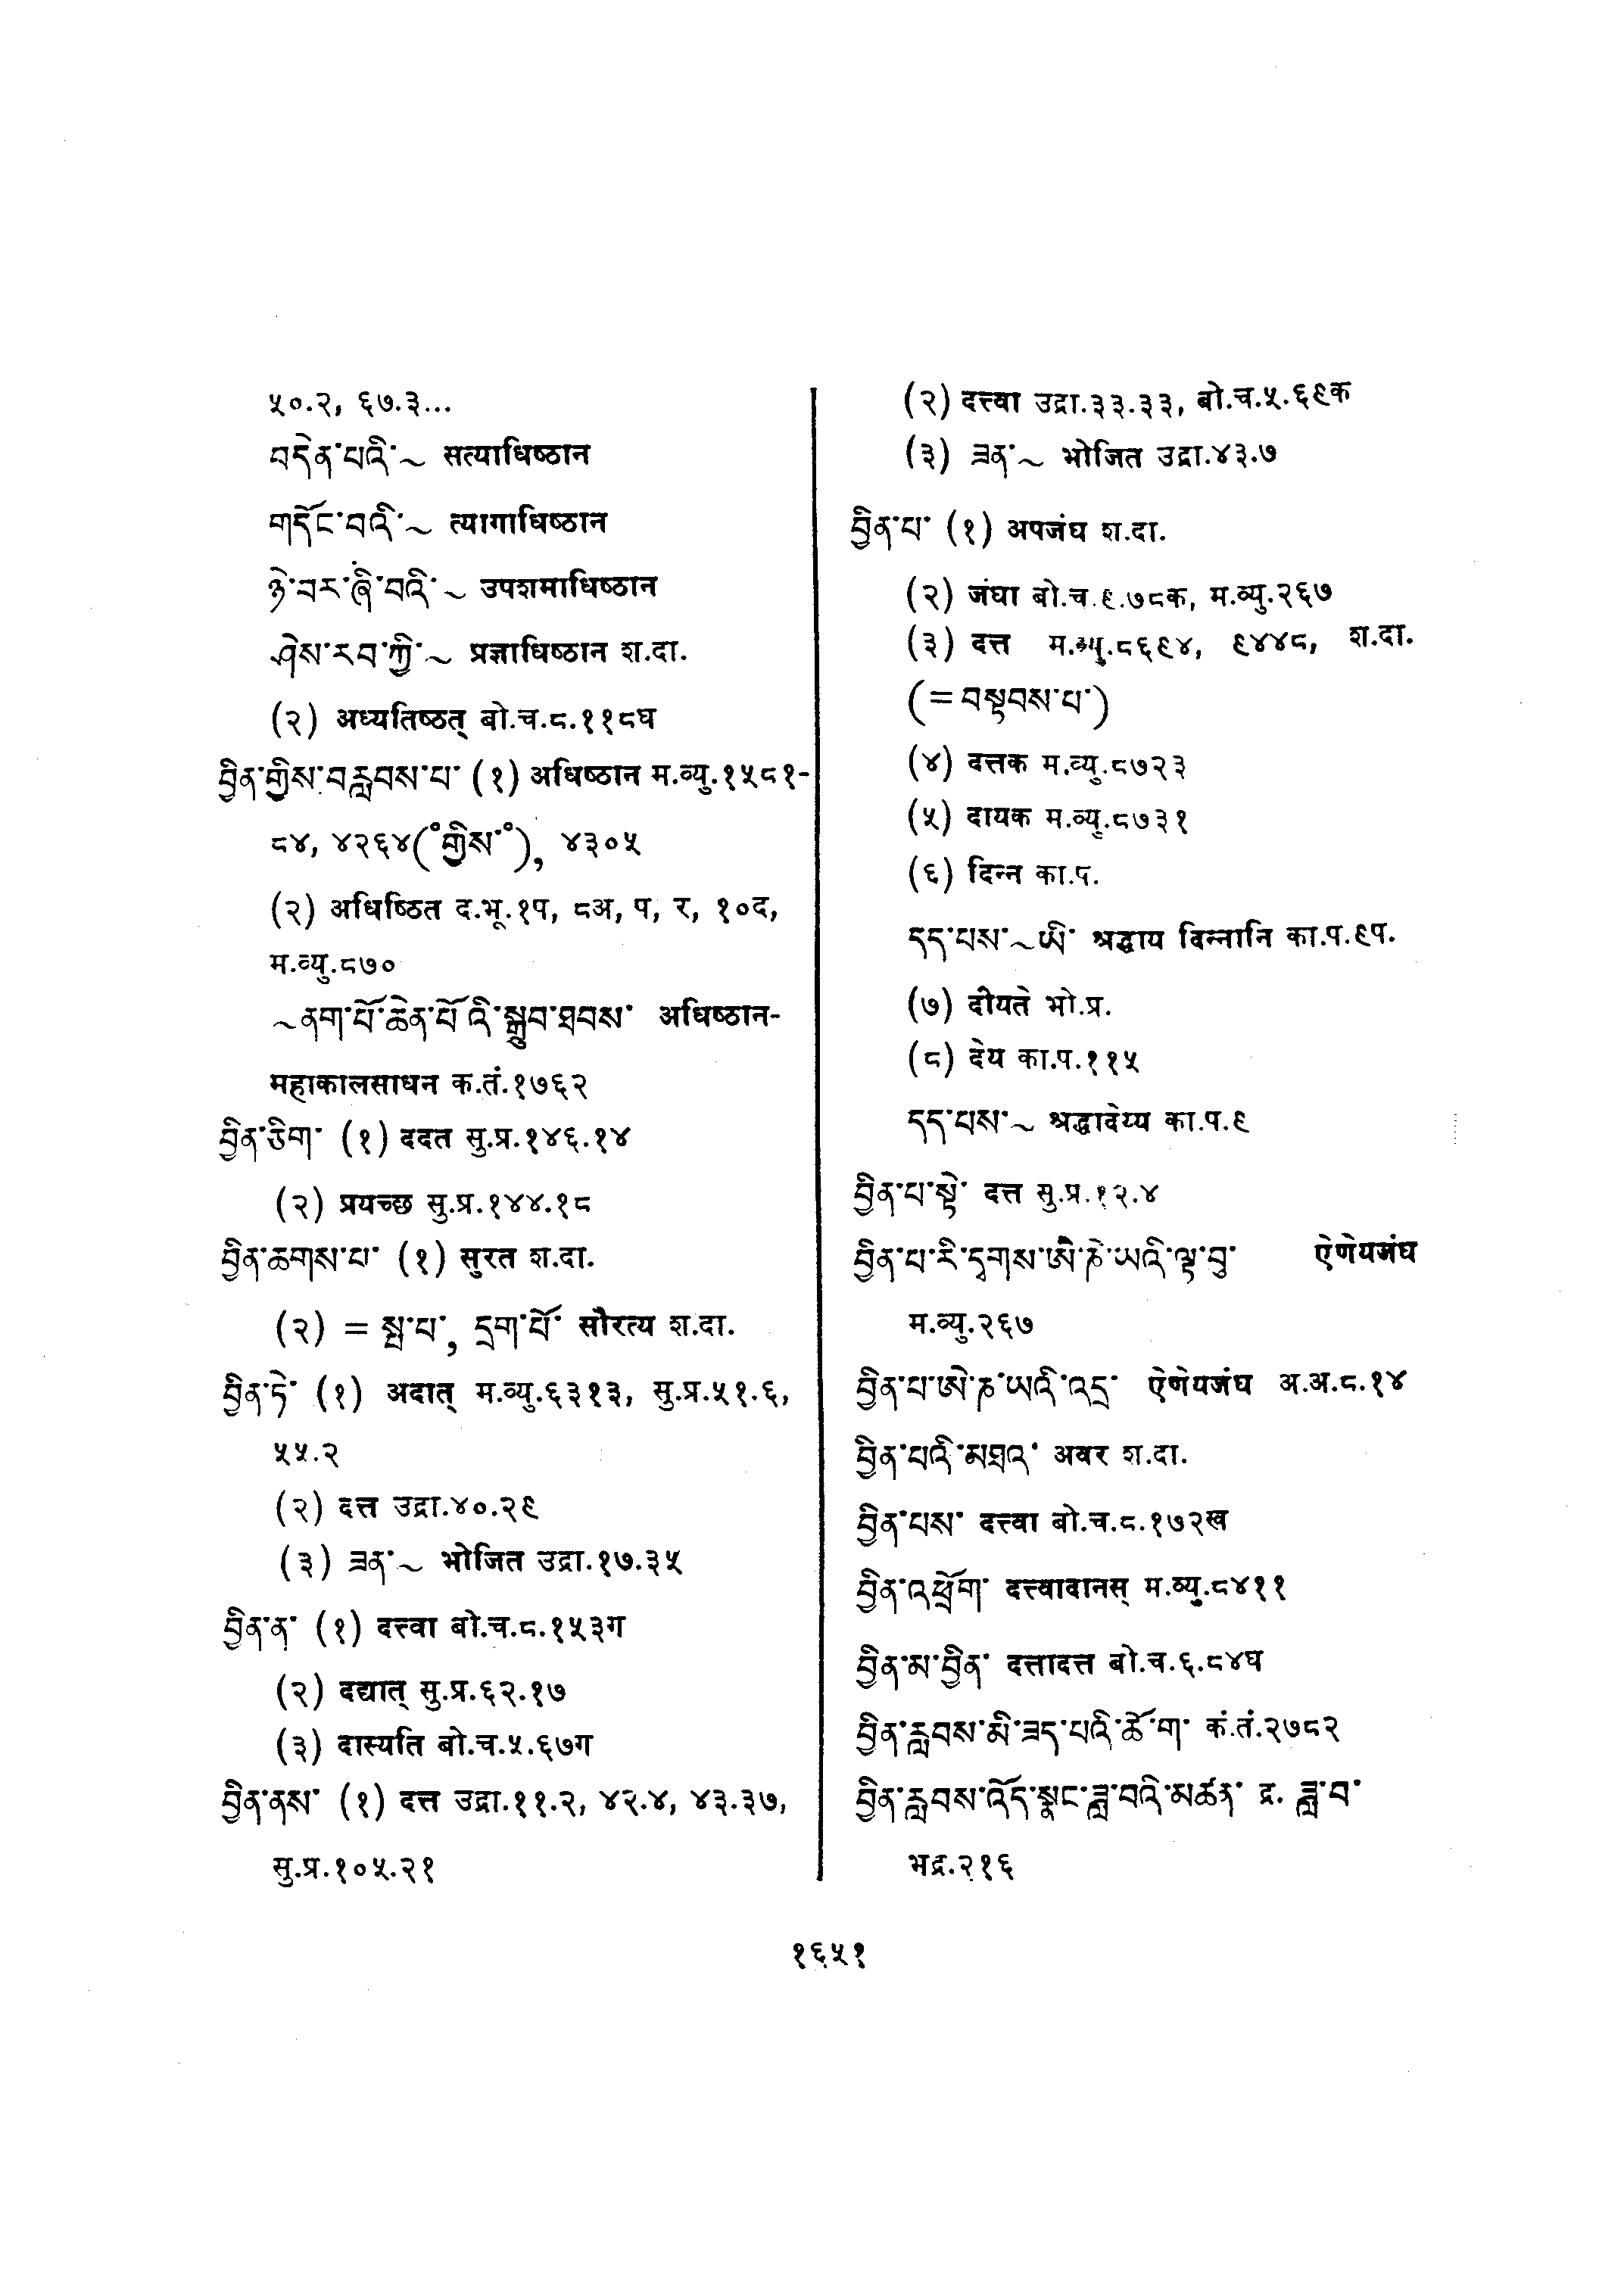 ५०.२, ६७.३...
བདེན་པའི་~ सत्याधिष्ठान
གདོང་བའི་~ त्यागाधिष्ठान
ཉེ་བར་ཞི་བའི་~ उपशमाधिष्ठान
ཤེས་རབ་ཀྱི་~ प्रज्ञाधिष्ठान श.दा.
(२) अध्यतिष्ठत् बो.च.८.११८घ
བྱིན་གྱིས་བརླབས་པ་ (१) अधिष्ठान म.व्यु.१५८१-
८४, ४२६४(॰གྱིས་॰), ४३०५
(२) अधिष्ठित द.भू.१प, ८अ, प, र, १०द,
म.व्यु.८७०
~ནག་པོ་ཆེན་པོ་འི་སྒྲུབ་ཐབས་ अधिष्ठान-
महाकालसाधन क.तं.१७६२
བྱིན་ཅིག་ (१) ददत सु.प्र.१४६.१४
(२) प्रयच्छ सु.प्र.१४४.१८
བྱིན་ཆགས་པ་ (१) सुरत श.दा.
(२) = སྤྲ་པ་, དྲག་པོ་ सौरत्य श.दा.
བྱིན་ཏེ་ (१) अदात् म.व्यु.६३१३, सु.प्र.५१.६,
५५.२
(२) दत्त उद्रा.४०.२९
(३) ཟན་~ भोजित उद्रा.१७.३५
བྱིན་ན་ (१) दत्त्वा बो.च.८.१५३ग
(२) दद्यात् सु.प्र.६२.१७
(३) दास्यति बो.च.५.६७ग
བྱིན་ནས་ (१) दत्त उद्रा.११.२, ४२.४, ४३.३७,
सु.प्र.१०५.२१
(२) दत्त्वा उद्रा.३३.३३, बो.च.५.६९क
(३) ཟན་~ भोजित उद्रा.४३.७
བྱིན་པ་ (१) अपजंघ श.दा.
(२) जंघा बो.च.९.७८क, म.व्यु.२६७
(३) दत्त म.व्यु.८६९४, ९४४८, श.दा.
(=བསྟབས་པ་)
(४) दत्तक म.व्यु.८७२३
(५) दायक म.व्यु.८७३१
(६) दिन्न का.प.
དད་པས་~ཡི་ श्रद्धाय दिन्नानि का.प.९प.
(७) दीयते भो.प्र.
(८) देय का.प.११५
དད་པས་~ श्रद्धादेय्य का.प.९
བྱིན་པ་སྟེ་ दत्त सु.प्र.१२.४
བྱིན་པ་རི་དྭགས་ཨེ་ཎེ་ཡའི་ལྟ་བུ་ ऐणेयजंघ
म.व्यु.२६७
བྱིན་པ་ཨེ་ཎ་ཡའི་འདྲ་ ऐणेयजंघ अ.अ.८.१४
བྱིན་པའི་མཐའ་ अवर श.दा.
བྱིན་པས་ दत्त्वा बो.च.८.१७२ख
བྱིན་འཕྲོག་ दत्त्वादानस् म.व्यु.८४११
བྱིན་མ་བྱིན་ दत्तादत्त बो.च.६.८४घ
བྱིན་རླབས་མི་ཟད་པའི་ཚོག་ कं.तं.२७८२
བྱིན་རླབས་འོད་སྣང་ཟླ་བའི་མཚན་ द्र. ཟླ་བ་
भद्र.२१६
१६५१